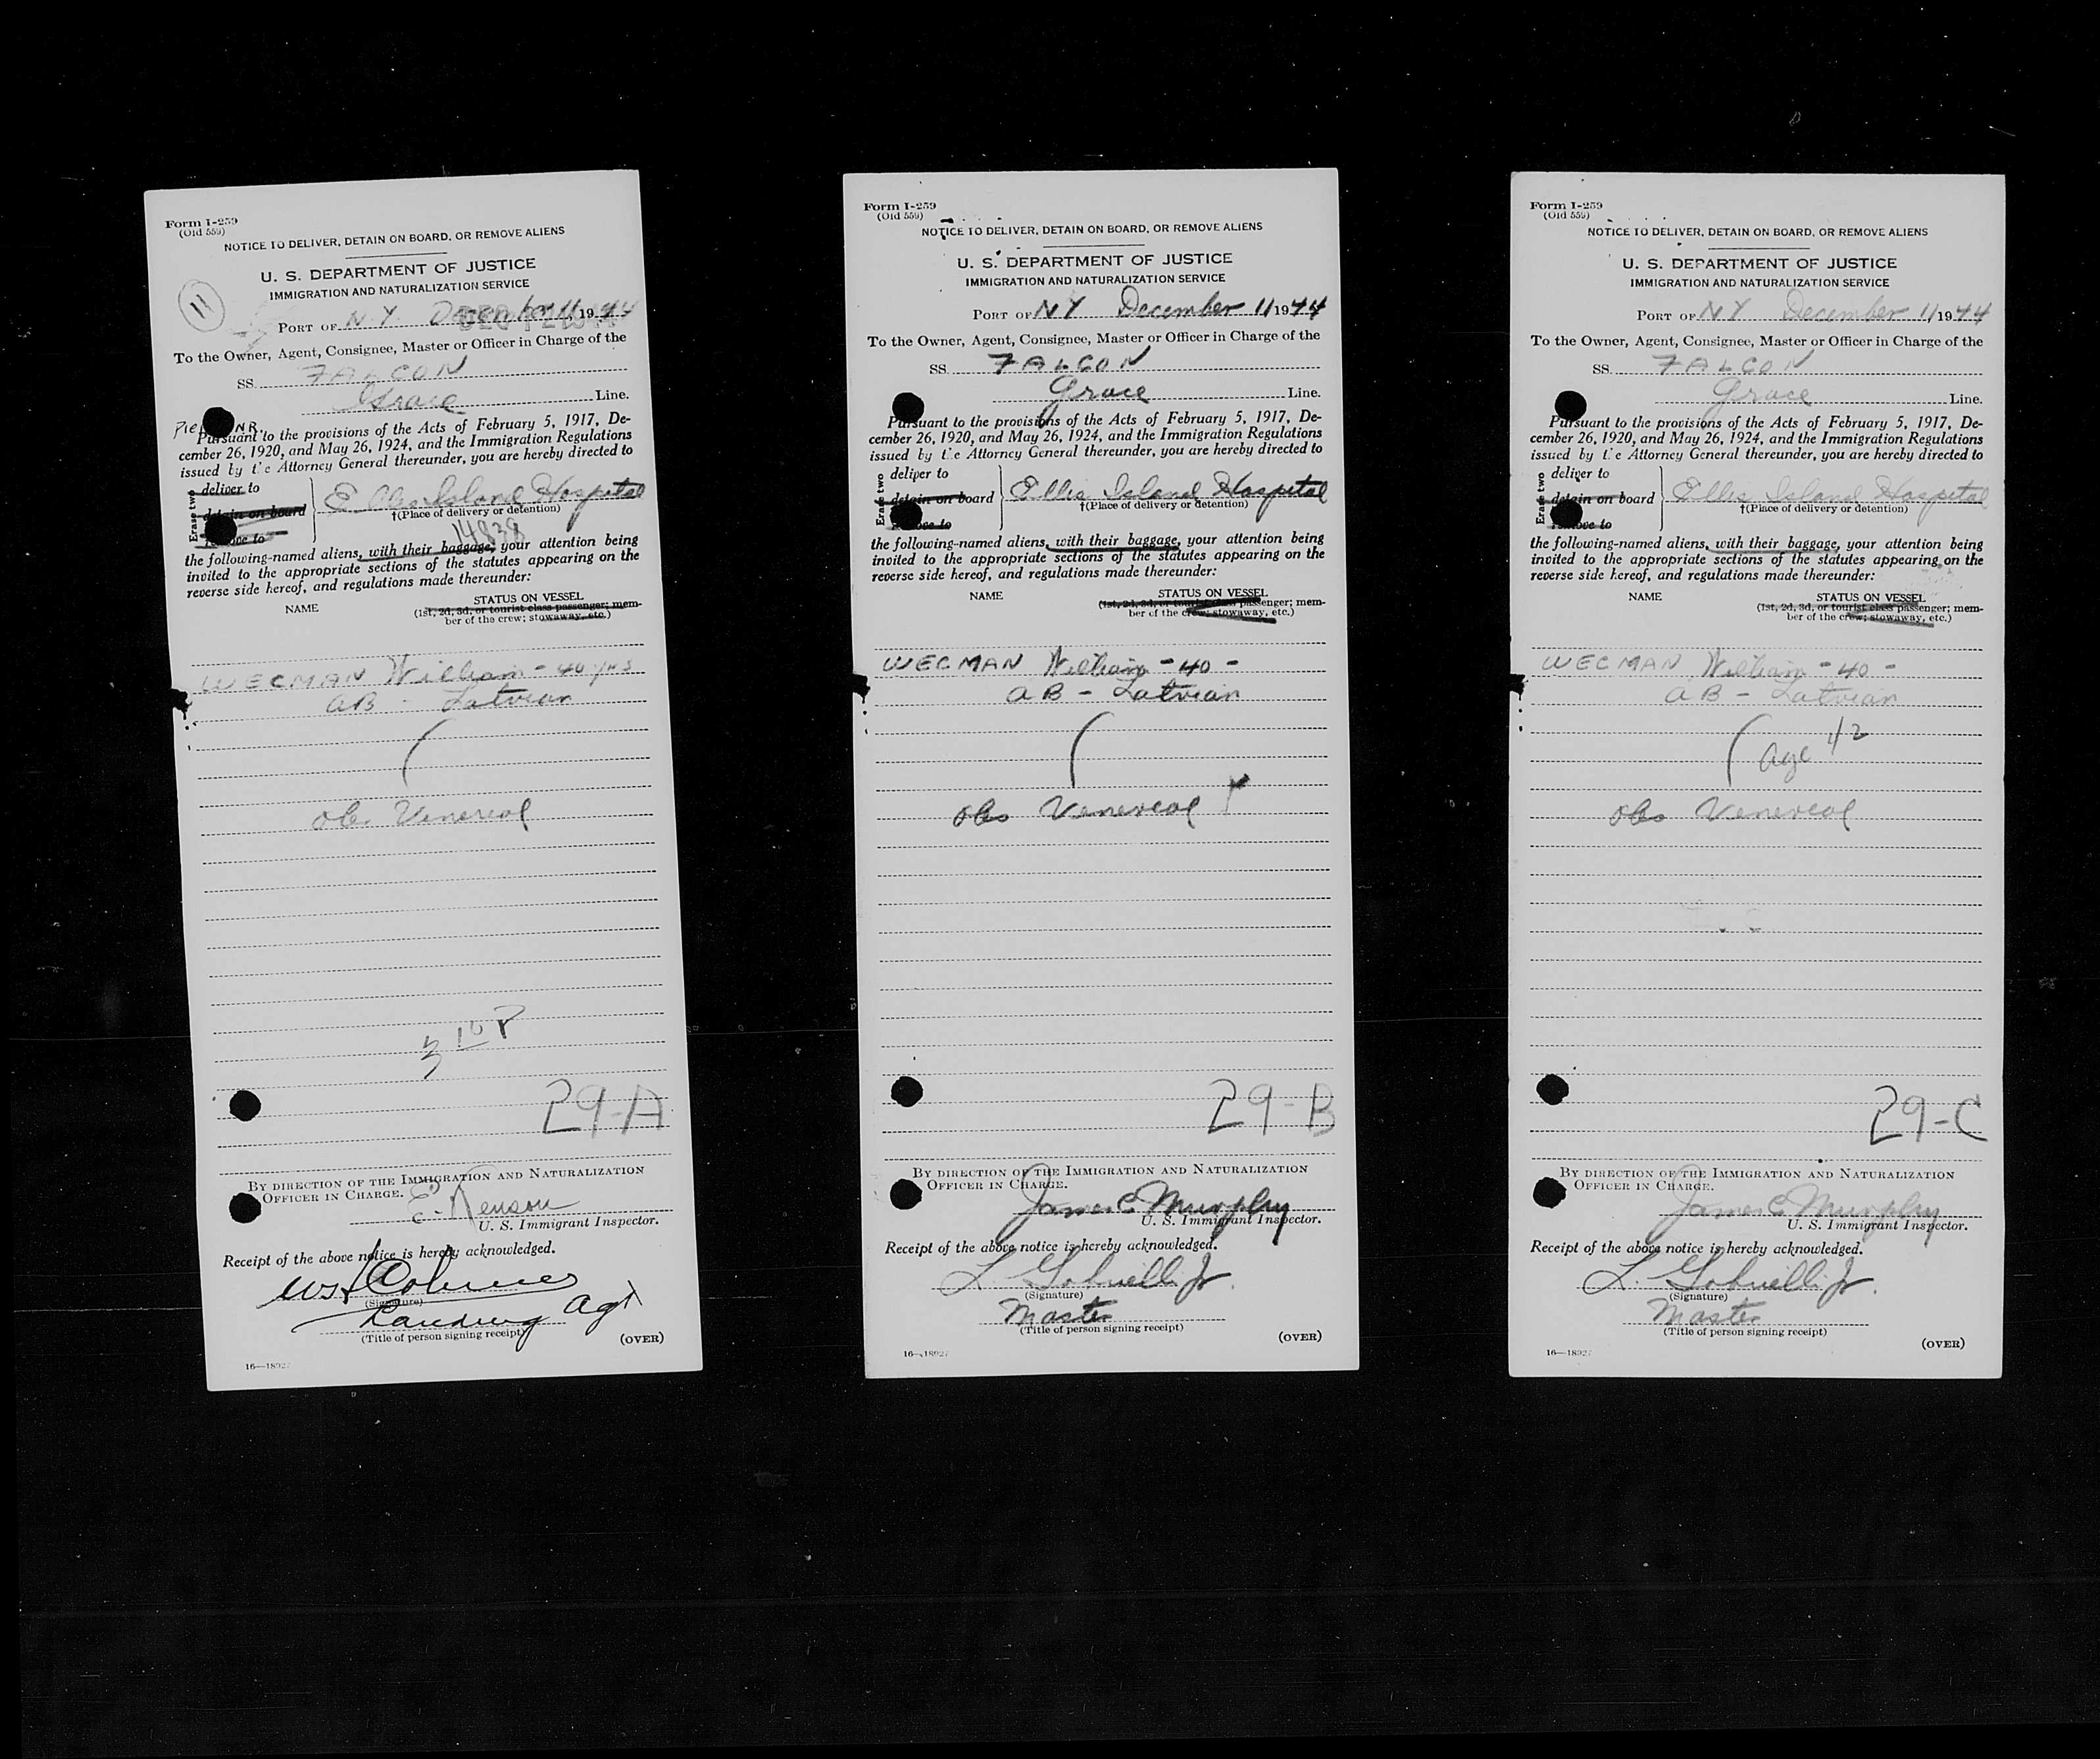 Form I-259
(Old 559)
NOTICE TO DELIVER, DETAIN ON BOARD, OR REMOVE ALIENS
U. S. DEPARTMENT OF JUSTICE
IMMIGRATION AND NATURALIZATION SERVICE
11
PORT OF N.Y. December 11, 1944
To the Owner, Agent, Consignee, Master or Officer in Charge of the
SS. FALCON
Grace Line.
Pursuant to the provisions of the Acts of February 5, 1917, De-
cember 26, 1920, and May 26, 1924, and the Immigration Regulations
issued by the Attorney General thereunder, you are hereby directed to
Erase two
deliver to
detain on board
remove to
Ellis Island Hospital
†(Place of delivery or detention)
14838
the following-named aliens, with their baggage, your attention being
invited to the appropriate sections of the statutes appearing on the
reverse side hereof, and regulations made thereunder:
NAME STATUS ON VESSEL
(1st, 2d, 3d, or tourist class passenger; mem-
ber of the crew; stowaway, etc.)
WECMAN William - 40 yrs
AB - Latvian
obs Venereal
3 10 P
29-A
BY DIRECTION OF THE IMMIGRATION AND NATURALIZATION
OFFICER IN CHARGE.
U. S. Immigrant Inspector.
Receipt of the above notice is hereby acknowledged.
(Signature)
Landing Agt
(Title of person signing receipt)
(OVER)
16—18927
Form I-259
(Old 559)
NOTICE TO DELIVER, DETAIN ON BOARD, OR REMOVE ALIENS
U. S. DEPARTMENT OF JUSTICE
IMMIGRATION AND NATURALIZATION SERVICE
PORT OF N Y December 11 1944
To the Owner, Agent, Consignee, Master or Officer in Charge of the
SS. FALCON
Grace Line.
Pursuant to the provisions of the Acts of February 5, 1917, De-
cember 26, 1920, and May 26, 1924, and the Immigration Regulations
issued by the Attorney General thereunder, you are hereby directed to
Erase two
deliver to
detain on board
remove to
Ellis Island Hospital
†(Place of delivery or detention)
the following-named aliens, with their baggage, your attention being
invited to the appropriate sections of the statutes appearing on the
reverse side hereof, and regulations made thereunder:
NAME STATUS ON VESSEL
(1st, 2d, 3d, or tourist class passenger; mem-
ber of the crew; stowaway, etc.)
WECMAN William - 40 -
AB - Latvian
obs Venereal
29-B
BY DIRECTION OF THE IMMIGRATION AND NATURALIZATION
OFFICER IN CHARGE.
James E Murphy
U. S. Immigrant Inspector.
Receipt of the above notice is hereby acknowledged.
L. Gabrielli Jr.
(Signature)
Master
(Title of person signing receipt)
(OVER)
16—18927
Form I-259
(Old 559)
NOTICE TO DELIVER, DETAIN ON BOARD, OR REMOVE ALIENS
U. S. DEPARTMENT OF JUSTICE
IMMIGRATION AND NATURALIZATION SERVICE
PORT OF N Y December 11 1944
To the Owner, Agent, Consignee, Master or Officer in Charge of the
SS. FALCON
Grace Line.
Pursuant to the provisions of the Acts of February 5, 1917, De-
cember 26, 1920, and May 26, 1924, and the Immigration Regulations
issued by the Attorney General thereunder, you are hereby directed to
Erase two
deliver to
detain on board
remove to
Ellis Island Hospital
†(Place of delivery or detention)
the following-named aliens, with their baggage, your attention being
invited to the appropriate sections of the statutes appearing on the
reverse side hereof, and regulations made thereunder:
NAME STATUS ON VESSEL
(1st, 2d, 3d, or tourist class passenger; mem-
ber of the crew; stowaway, etc.)
WECMAN William - 40 -
AB - Latvian
Age 42
obs Venereal
29-C
BY DIRECTION OF THE IMMIGRATION AND NATURALIZATION
OFFICER IN CHARGE.
James E Murphy
U. S. Immigrant Inspector.
Receipt of the above notice is hereby acknowledged.
L. Gabrielli Jr.
(Signature)
Master
(Title of person signing receipt)
(OVER)
16—18927